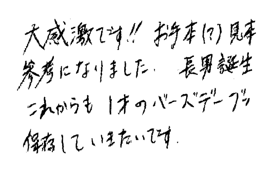 大感激です!! お手本(?)見本
参考になりました. 長男誕生
これからも 1才のバーズデーブッ
保存していきたいです.